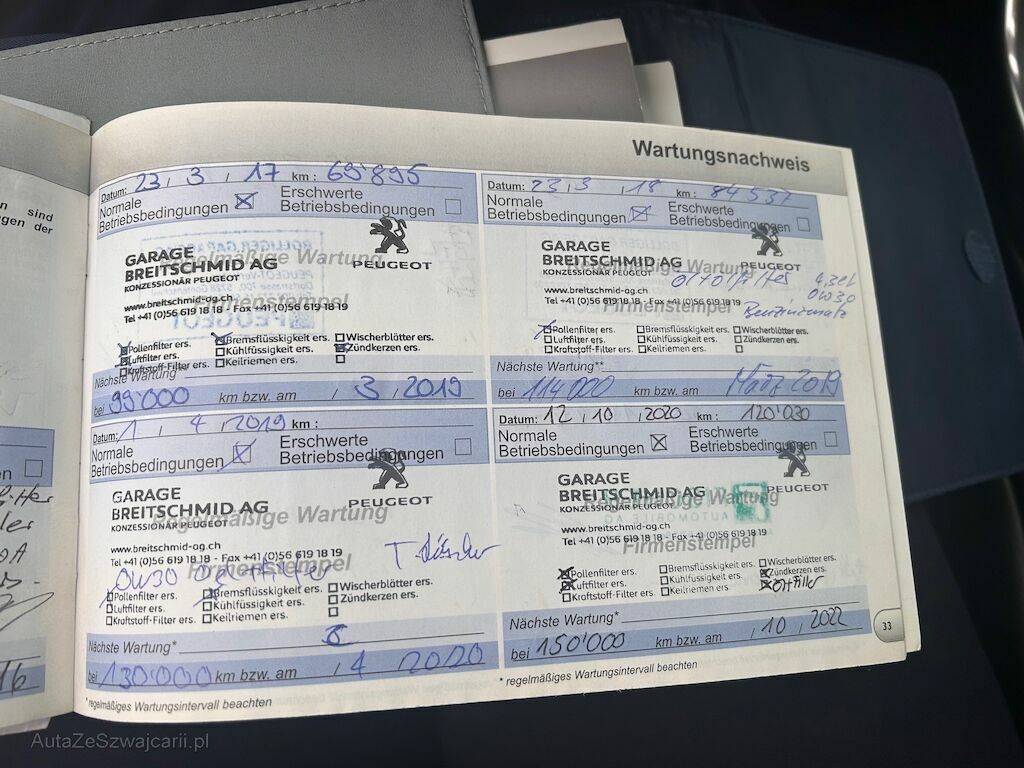 Wartungsnachweis
n sind
gen der
Datum: 23, 3, 17 km: 69'895
Normale Betriebsbedingungen ☒ Erschwerte Betriebsbedingungen ☐
Regelmäßige Wartung
GARAGE
BREITSCHMID AG
KONZESSIONÄR PEUGEOT
PEUGEOT
www.breitschmid-ag.ch
Firmenstempel
Tel +41 (0)56 619 18 18 - Fax +41 (0)56 619 18 19
☒ Pollenfilter ers. ☒ Bremsflüssigkeit ers. ☐ Wischerblätter ers.
☒ Luftfilter ers. ☐ Kühlflüssigkeit ers. ☒ Zündkerzen ers.
☐ Kraftstoff-Filter ers. ☐ Keilriemen ers. ☐
Nächste Wartung
bei 99'000 km bzw. am / 3, 2019
Datum: 23, 3, 18 km: 84'537
Normale Betriebsbedingungen ☒ Erschwerte Betriebsbedingungen ☐
Regelmäßige Wartung
GARAGE
BREITSCHMID AG
KONZESSIONÄR PEUGEOT
PEUGEOT
www.breitschmid-ag.ch
Firmenstempel
Tel +41 (0)56 619 18 18 - Fax +41 (0)56 619 18 19
0W30
Benzinzusatz
☒ Pollenfilter ers. ☐ Bremsflüssigkeit ers. ☐ Wischerblätter ers.
☐ Luftfilter ers. ☐ Kühlflüssigkeit ers. ☐ Zündkerzen ers.
☐ Kraftstoff-Filter ers. ☐ Keilriemen ers. ☐
Nächste Wartung**
bei 114'000 km bzw. am März 2019
Datum: 1, 4, 2019 km:
Normale Betriebsbedingungen ☒ Erschwerte Betriebsbedingungen ☐
Regelmäßige Wartung
GARAGE
BREITSCHMID AG
KONZESSIONÄR PEUGEOT
PEUGEOT
www.breitschmid-ag.ch
Firmenstempel
Tel +41 (0)56 619 18 18 - Fax +41 (0)56 619 18 19
0W30 Oelfilter
☒ Pollenfilter ers. ☒ Bremsflüssigkeit ers. ☐ Wischerblätter ers.
☐ Luftfilter ers. ☐ Kühlflüssigkeit ers. ☐ Zündkerzen ers.
☐ Kraftstoff-Filter ers. ☐ Keilriemen ers. ☐
Nächste Wartung*
bei 130'000 km bzw. am / 4, 2020
* regelmäßiges Wartungsintervall beachten
Datum: 12, 10, 2020 km: 120'030
Normale Betriebsbedingungen ☒ Erschwerte Betriebsbedingungen ☐
Regelmäßige Wartung
GARAGE
BREITSCHMID AG
KONZESSIONÄR PEUGEOT
PEUGEOT
AUTOMOBILE AG
www.breitschmid-ag.ch
Firmenstempel
Tel +41 (0)56 619 18 18 - Fax +41 (0)56 619 18 19
☒ Pollenfilter ers. ☐ Bremsflüssigkeit ers. ☐ Wischerblätter ers.
☒ Luftfilter ers. ☐ Kühlflüssigkeit ers. ☒ Zündkerzen ers.
☐ Kraftstoff-Filter ers. ☐ Keilriemen ers. ☒ Ölfilter
Nächste Wartung*
bei 150'000 km bzw. am , 10, 2022
* regelmäßiges Wartungsintervall beachten
33
AutaZeSzwajcarii.pl